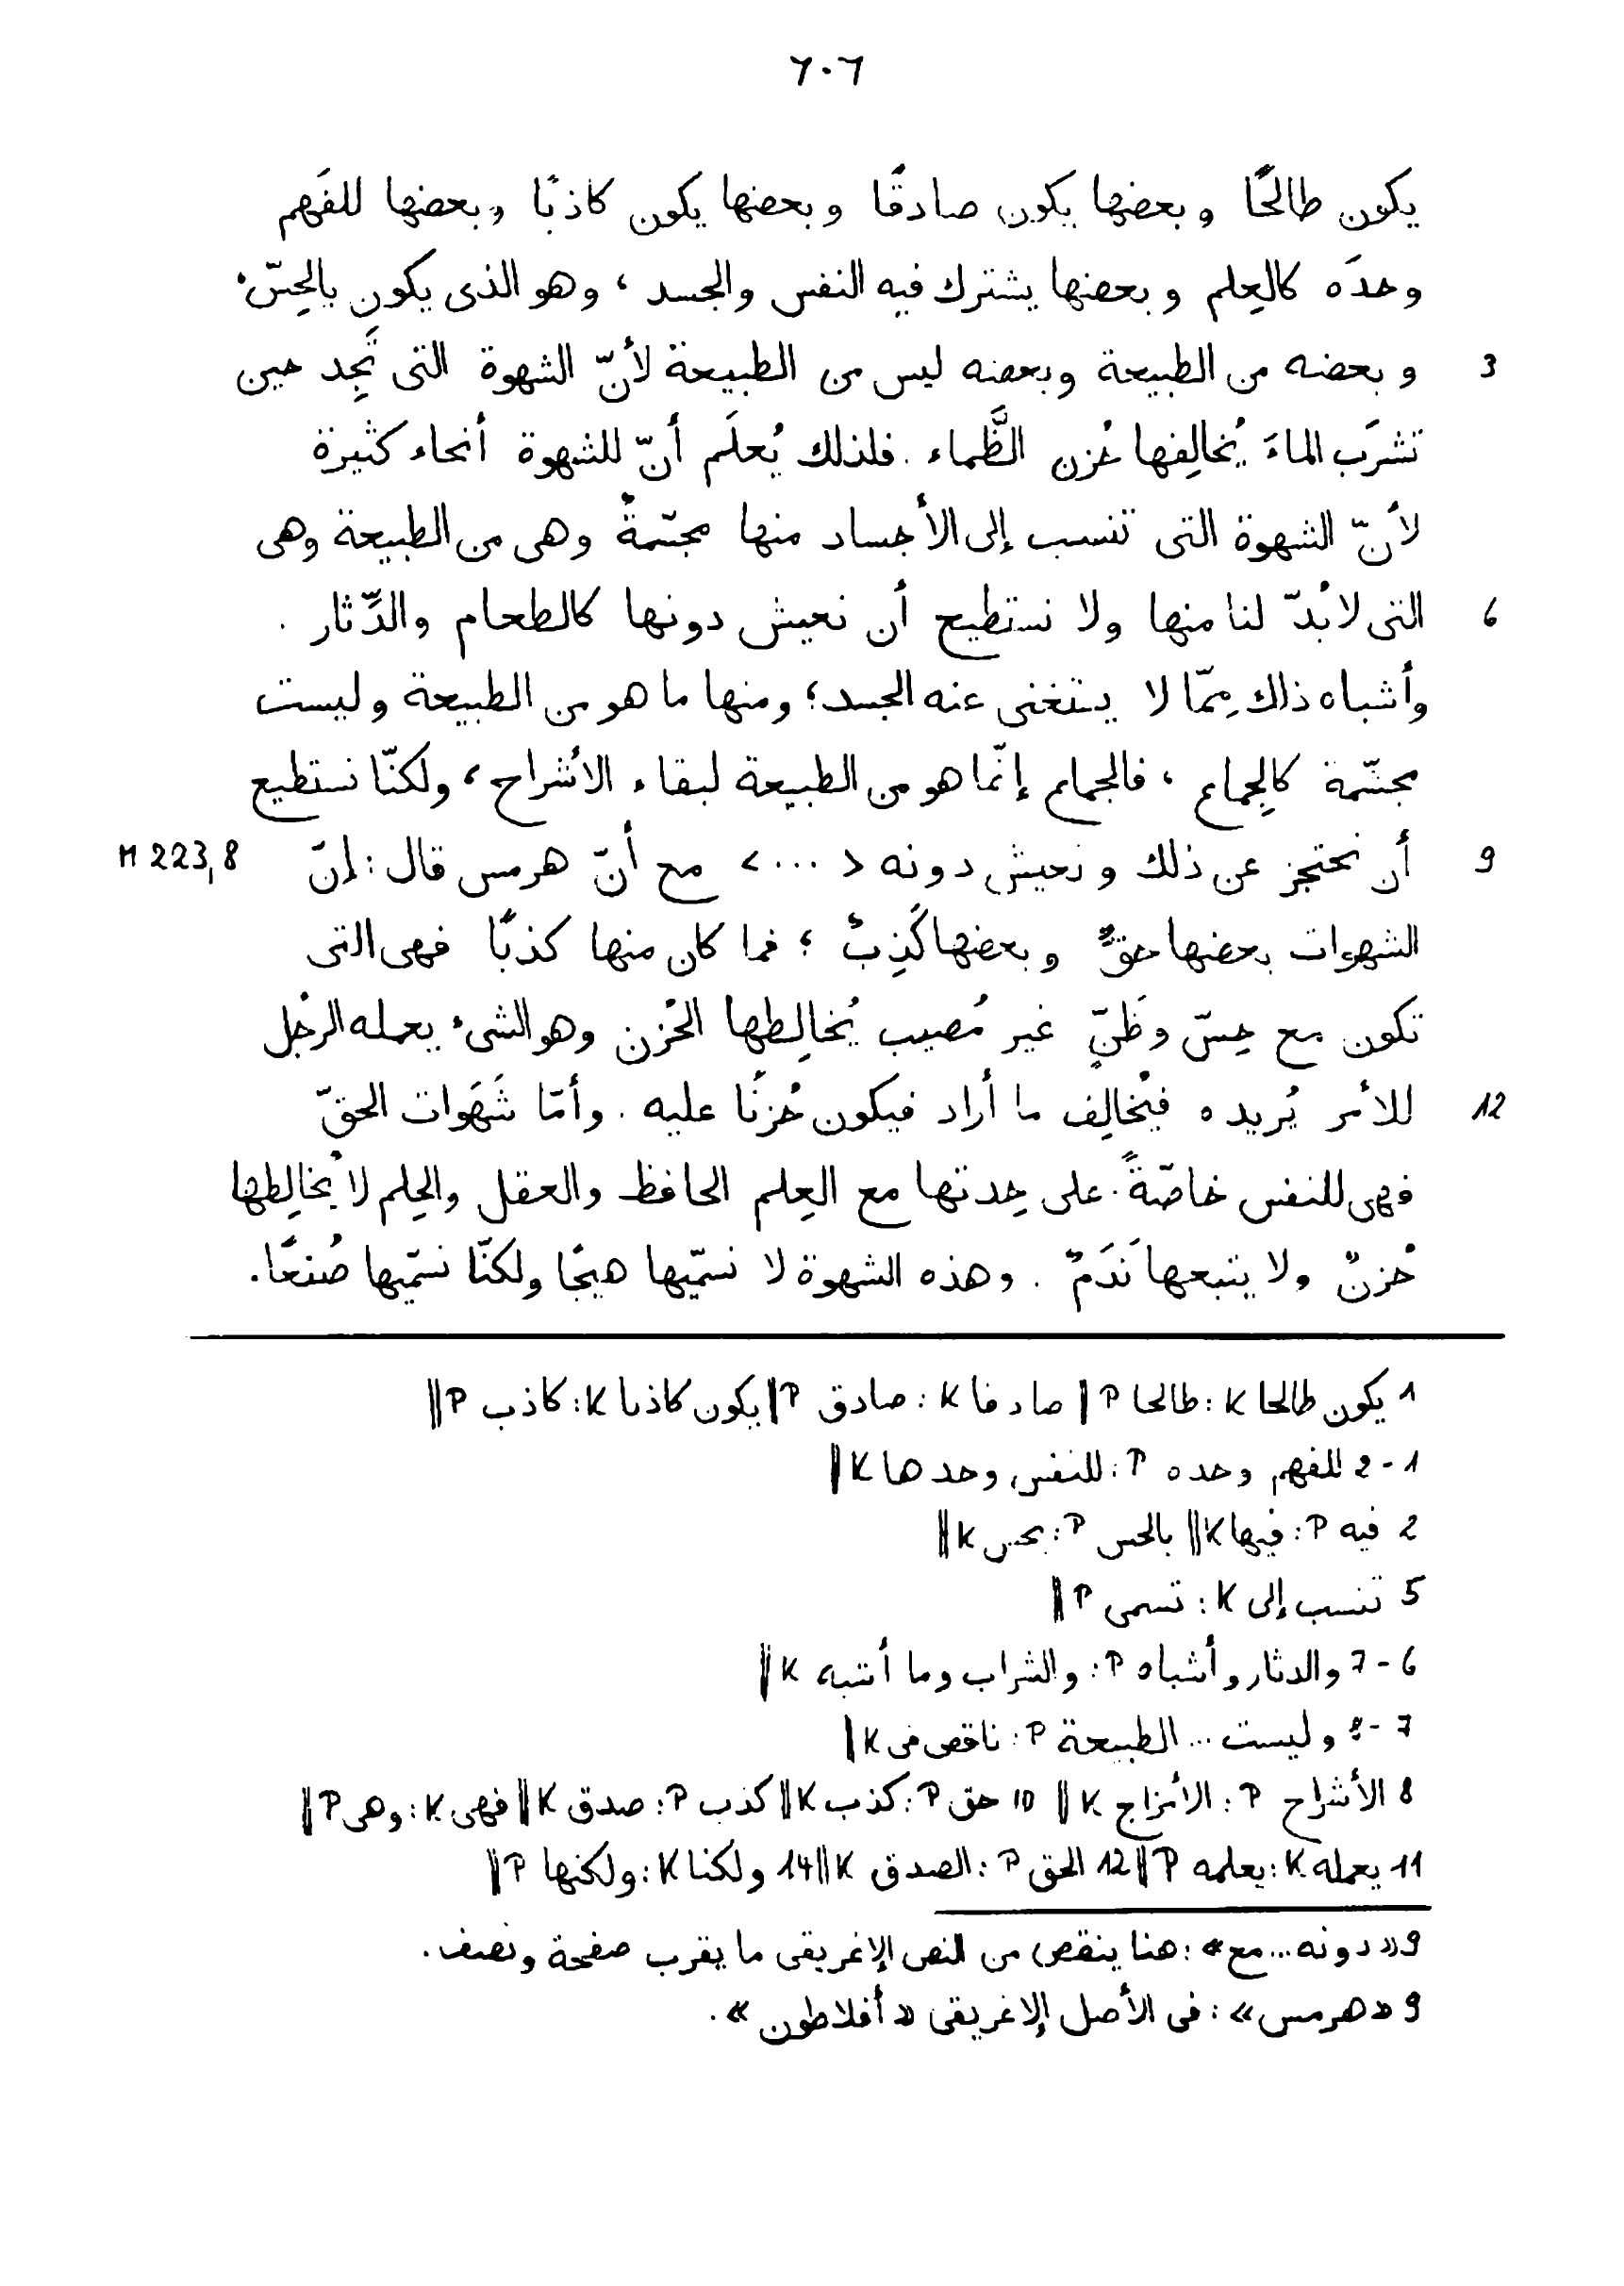 ٦٠٦
يكون طالحًا وبعضها يكون صادقًا وبعضها يكون كاذبًا وبعضها للفَهم
وحدَه كالعِلم وبعضها يشترك فيه النفس والجسد ، وهو الذى يكون بالحِسّ.
3 وبعضه من الطبيعة وبعضه ليس من الطبيعة لأنّ الشهوة التى تَجِد حين
تشرَب الماءَ يُخالِفها حُزن الظَّماء . فلذلك يُعلَم أنّ للشهوة أنحاء كثيرة
لأنّ الشهوة التى تنسب إلى الأجساد منها مجسّمةٌ وهى من الطبيعة وهى
6 التى لا بُدّ لنا منها ولا نستطيع أن نعيش دونها كالطعام والدِّثار .
وأشباه ذلك مِمّا لا يستغنى عنه الجسد؛ ومنها ما هو من الطبيعة وليست
مجسّمة كالجِماع ، فالجماع إنّما هو من الطبيعة لبقاء الأشراح ، ولكنّا نستطيع
9 أن نحتجز عن ذلك ونعيش دونه < ... > مع أنّ هرمس قال : إنّ M 223,8
الشهوات بعضها حقٌّ وبعضها كَذِبٌ ؛ فما كان منها كذبًا فهى التى
تكون مع حِسّ وظَنٍّ غير مُصيب يُخالِطها الحُزن وهو الشىء يعمله الرجُل
12 للأمر يُريده فيُخالِف ما أراد فيكون حُزنًا عليه . وأمّا شَهَوات الحقّ
فهى للنفس خاصّةً على حِدتها مع العِلم الحافظ والعقل والحِلم لا يُخالِطها
حُزنٌ ولا يتبعها نَدَمٌ . وهذه الشهوة لا نسمّيها هيجًا ولكنّا نسمّيها صُنعًا .
1 يكون طالحا K : طالحا P || صادقا K : صادق P || يكون كاذبا K : كاذب P ||
1-2 للفهم وحده P : للنفس وحدها K ||
2 فيه P : فيها K || بالحس P : بحس K ||
5 تنسب إلى K : تسمى P ||
6-7 والدثار وأشباه P : والشراب وما أشبه K ||
7-8 وليست ... الطبيعة P : ناقص فى K ||
8 الأشراح P : الأمزاج K || 10 حق P : كذب K || كذب P : صدق K || فهى K : وهى P ||
11 يعمله K : يعلمه P || 12 الحق P : الصدق K || 14 ولكنا K : ولكنها P ||
9 «دونه ... مع» : هنا ينقص من النص الإغريقى ما يقرب صفحة ونصف .
9 «هرمس» : فى الأصل الإغريقى «أفلاطون» .